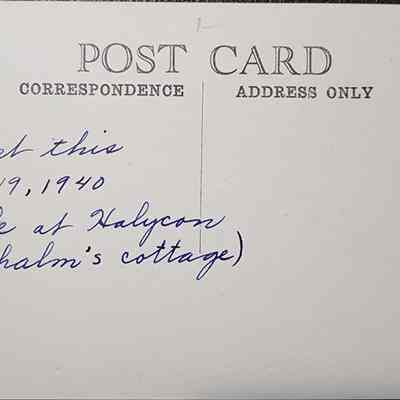 POST CARD
CORRESPONDENCE ADDRESS ONLY
this
19, 1940
at Halycon
cottage)